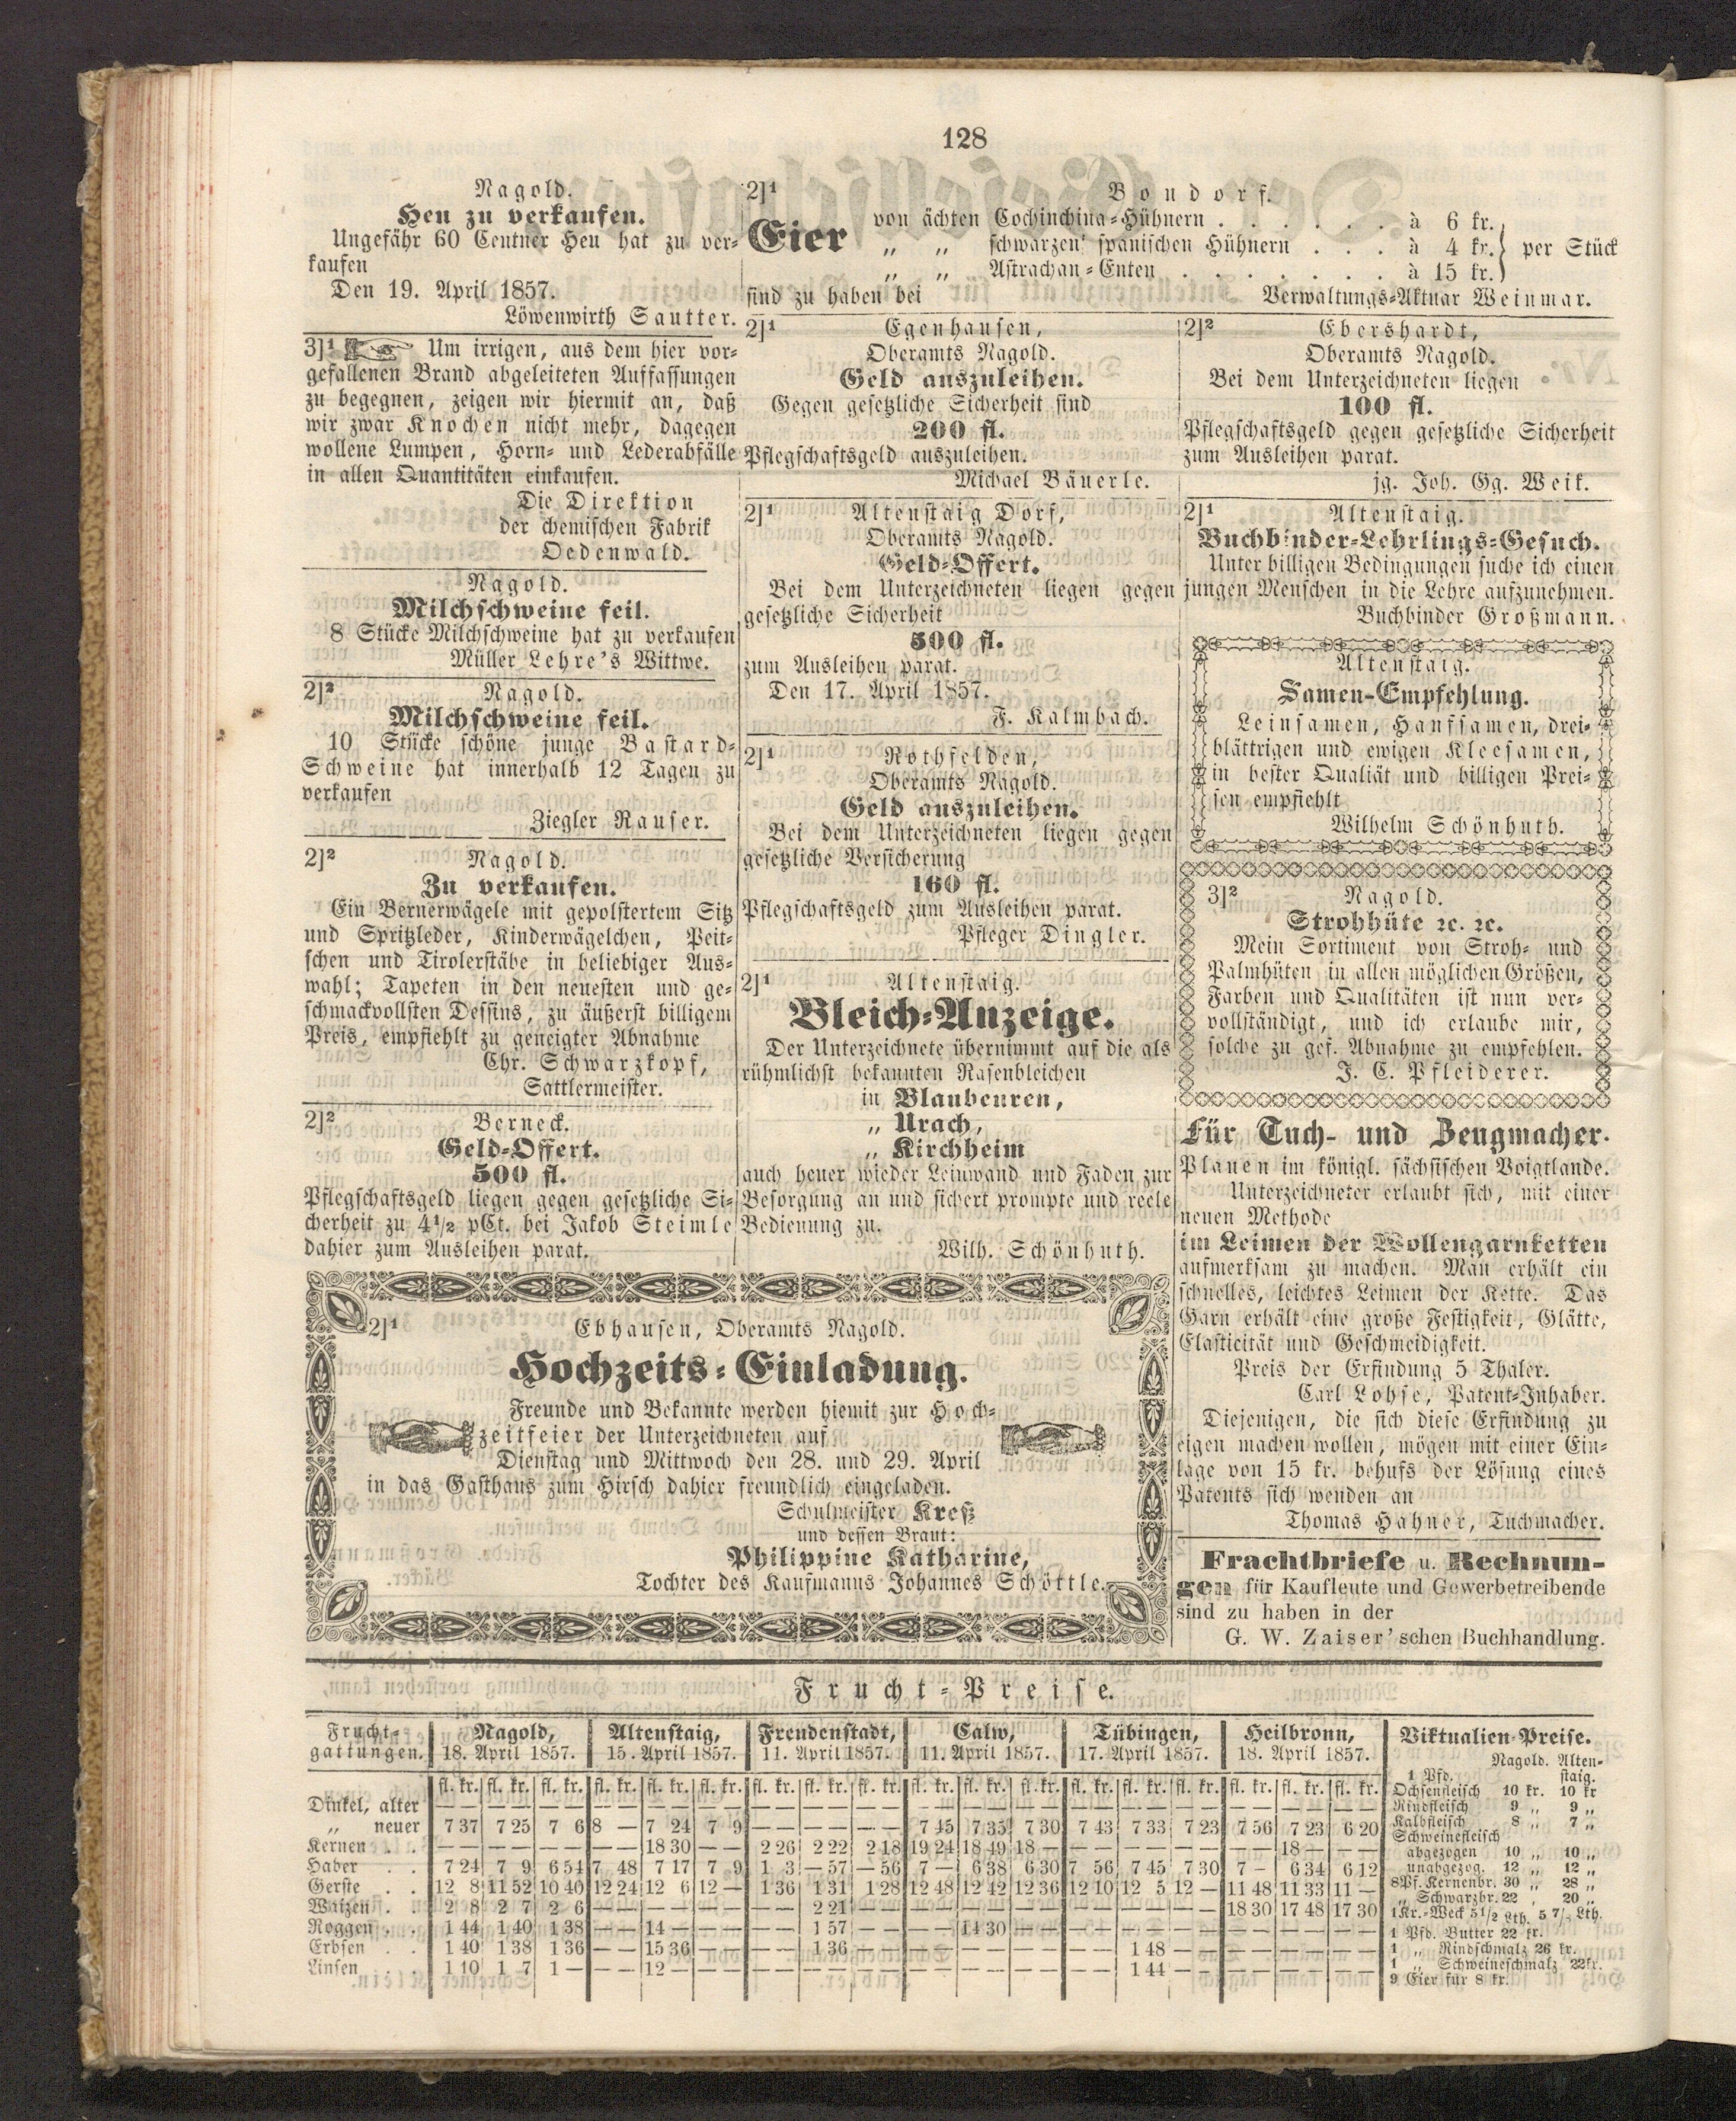 128
Nagold.
Heu zu verkaufen.
Ungefähr 60 Centner Heu hat zu ver-
kaufen
Den 19. April 1857.
Löwenwirth Sautter.
3]1 Um irrigen, aus dem hier vor-
gefallenen Brand abgeleiteten Auffassungen
zu begegnen, zeigen wir hiermit an, daß
wir zwar Knochen nicht mehr, dagegen
wollene Lumpen, Horn- und Lederabfälle
in allen Quantitäten einkaufen.
Die Direktion
der chemischen Fabrik
Oedenwald.
Nagold.
Milchschweine feil.
8 Stücke Milchschweine hat zu verkaufen
Müller Lehre's Wittwe.
2]2 Nagold.
Milchschweine feil.
10 Stücke schöne junge Bastard-
Schweine hat innerhalb 12 Tagen zu
verkaufen
Ziegler Rauser.
2]2 Nagold.
Zu verkaufen.
Ein Bernerwägele mit gepolstertem Sitz
und Spritzleder, Kinderwägelchen, Peit-
schen und Tirolerstäbe in beliebiger Aus-
wahl; Tapeten in den neuesten und ge-
schmackvollsten Dessins, zu äußerst billigem
Preis, empfiehlt zu geneigter Abnahme
Chr. Schwarzkopf,
Sattlermeister.
2]2 Berneck.
Geld-Offert.
500 fl.
Pflegschaftsgeld liegen gegen gesetzliche Si-
cherheit zu 4 1/2 pCt. bei Jakob Steimle
dahier zum Ausleihen parat.
2]1 Bondorf.
Eier von ächten Cochinchina-Hühnern . . . . . . à 6 kr.
„ „ schwarzen spanischen Hühnern . . . à 4 kr. } per Stück
„ „ Astrachan-Enten . . . . . . . à 15 kr.
sind zu haben bei Verwaltungs-Aktuar Weinmar.
2]1 Egenhausen,
Oberamts Nagold.
Geld auszuleihen.
Gegen gesetzliche Sicherheit sind
200 fl.
Pflegschaftsgeld auszuleihen.
Michael Bäuerle.
2]1 Altenstaig Dorf,
Oberamts Nagold.
Geld-Offert.
Bei dem Unterzeichneten liegen gegen
gesetzliche Sicherheit
500 fl.
zum Ausleihen parat.
Den 17. April 1857.
F. Kalmbach.
2]1 Rothfelden,
Oberamts Nagold.
Geld auszuleihen.
Bei dem Unterzeichneten liegen gegen
gesetzliche Versicherung
160 fl.
Pflegschaftsgeld zum Ausleihen parat.
Pfleger Dingler.
2]1 Altenstaig.
Bleich-Anzeige.
Der Unterzeichnete übernimmt auf die als
rühmlichst bekannten Rasenbleichen
in Blaubeuren,
„ Urach,
„ Kirchheim
auch heuer wieder Leinwand und Faden zur
Besorgung an und sichert prompte und reele
Bedienung zu.
Wilh. Schönhuth.
2]2 Ebershardt,
Oberamts Nagold.
Bei dem Unterzeichneten liegen
100 fl.
Pflegschaftsgeld gegen gesetzliche Sicherheit
zum Ausleihen parat.
jg. Joh. Gg. Weik.
2]1 Altenstaig.
Buchbinder-Lehrlings-Gesuch.
Unter billigen Bedingungen suche ich einen
jungen Menschen in die Lehre aufzunehmen.
Buchbinder Großmann.
Altenstaig.
Samen-Empfehlung.
Leinsamen, Hanfsamen, drei-
blättrigen und ewigen Kleesamen,
in bester Qualiät und billigen Prei-
sen empfiehlt
Wilhelm Schönhuth.
3]2 Nagold.
Strohhüte ꝛc. ꝛc.
Mein Sortiment von Stroh- und
Palmhüten in allen möglichen Größen,
Farben und Qualitäten ist nun ver-
vollständigt, und ich erlaube mir,
solche zu gef. Abnahme zu empfehlen.
J. C. Pfleiderer.
Für Tuch- und Zeugmacher.
Plauen im königl. sächsischen Voigtlande.
Unterzeichneter erlaubt sich, mit einer
neuen Methode
im Leimen der Wollengarnketten
aufmerksam zu machen. Man erhält ein
schnelles, leichtes Leimen der Kette. Das
Garn erhält eine große Festigkeit, Glätte,
Elasticität und Geschmeidigkeit.
Preis der Erfindung 5 Thaler.
Carl Lohse, Patent-Inhaber.
Diejenigen, die sich diese Erfindung zu
eigen machen wollen, mögen mit einer Ein-
lage von 15 kr. behufs der Lösung eines
Patents sich wenden an
Thomas Hahner, Tuchmacher.
Frachtbriefe u. Rechnun-
gen für Kaufleute und Gewerbetreibende
sind zu haben in der
G. W. Zaiser'schen Buchhandlung.
2]1 Ebhausen, Oberamts Nagold.
Hochzeits-Einladung.
Freunde und Bekannte werden hiemit zur Hoch-
zeitfeier der Unterzeichneten auf
Dienstag und Mittwoch den 28. und 29. April
in das Gasthaus zum Hirsch dahier freundlich eingeladen.
Schulmeister Kreß
und dessen Braut:
Philippine Katharine,
Tochter des Kaufmanns Johannes Schöttle.
Frucht-Preise.
Frucht-gattungen. | Nagold, 18. April 1857. | Altenstaig, 15. April 1857. | Freudenstadt, 11. April 1857. | Calw, 11. April 1857. | Tübingen, 17. April 1857. | Heilbronn, 18. April 1857.
fl. kr. fl. kr. fl. kr. | fl. kr. fl. kr. fl. kr. | fl. kr. fl. kr. fl. kr. | fl. kr. fl. kr. fl. kr. | fl. kr. fl. kr. fl. kr. | fl. kr. fl. kr. fl. kr.
Dinkel, alter — — — — — — | — — — — — — | — — — — — — | — — — — — — | — — — — — — | — — — — — —
„ neuer 7 37 7 25 7 6 | 8 — 7 24 7 9 | — — — — — — | 7 45 7 35 7 30 | 7 43 7 33 7 23 | 7 56 7 23 6 20
Kernen . . — — — — — — | — — 18 30 — — | 2 26 2 22 2 18 | 19 24 18 49 18 — | — — — — — — | — — 18 — — —
Haber . . 7 24 7 9 6 54 | 7 48 7 17 7 9 | 1 3 — 57 — 56 | 7 — 6 38 6 30 | 7 56 7 45 7 30 | 7 — 6 34 6 12
Gerste . . 12 8 11 52 10 40 | 12 24 12 6 12 — | 1 36 1 31 1 28 | 12 48 12 42 12 36 | 12 10 12 5 12 — | 11 48 11 33 11 —
Waizen . . 2 8 2 7 2 6 | — — — — — — | — — 2 21 — — | — — — — — — | — — — — — — | 18 30 17 48 17 30
Roggen . . 1 44 1 40 1 38 | — — 14 — — — | — — 1 57 — — | — — 14 30 — — | — — — — — — | — — — — — —
Erbsen . . 1 40 1 38 1 36 | — — 15 36 — — | — — 1 36 — — | — — — — — — | — — 1 48 — — | — — — — — —
Linsen . . 1 10 1 7 1 — | — — 12 — — — | — — — — — — | — — — — — — | — — 1 44 — — | — — — — — —
Viktualien-Preise.
Nagold. Alten-
1 Pfd. staig.
Ochsenfleisch 10 kr. 10 kr
Rindfleisch 9 „ 9 „
Kalbfleisch 8 „ 7 „
Schweinefleisch
abgezogen 10 „ 10 „
unabgezog. 12 „ 12 „
8 Pf. Kernenbr. 30 „ 28 „
„ Schwarzbr. 22 „ 20 „
1 Kr.-Weck 5 1/2 Lth. 5 7/8 Lth.
1 Pfd. Butter 22 kr.
1 „ Rindschmalz 26 kr.
1 „ Schweineschmalz 22 kr.
9 Eier für 8 kr.